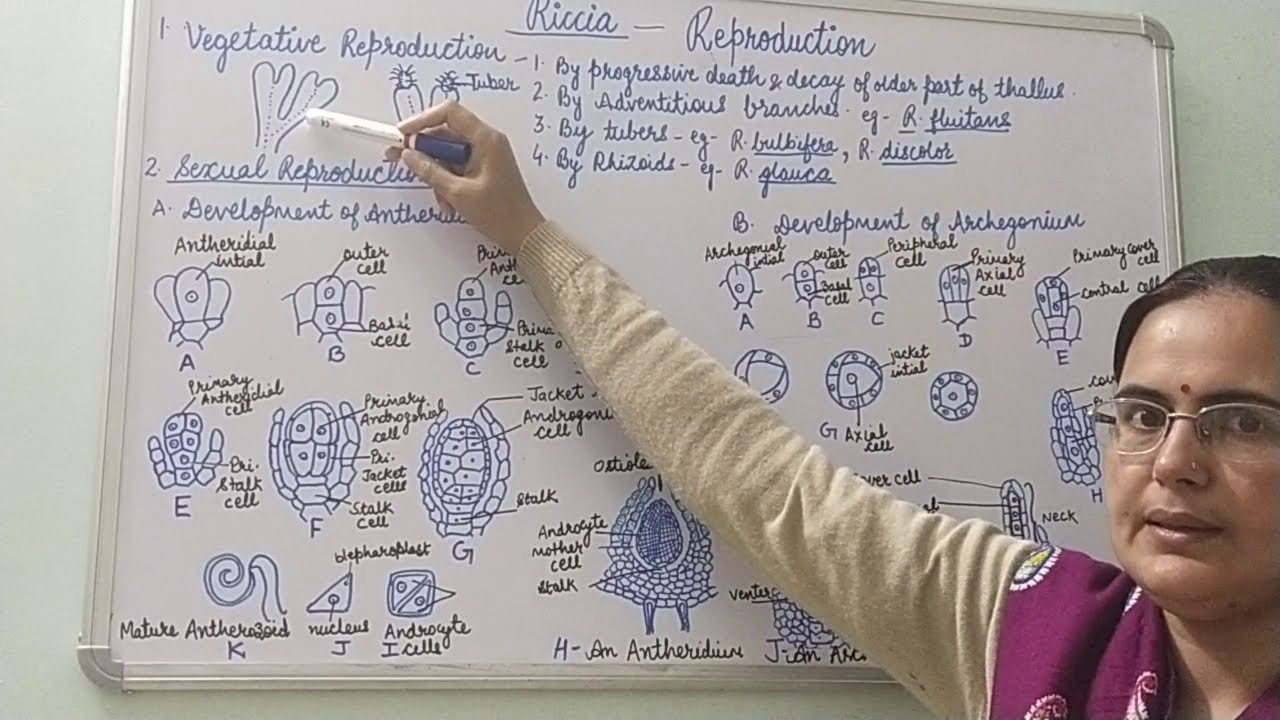 Riccia — Reproduction
1. Vegetative Reproduction -
1. By progressive death & decay of older part of thallus.
2. By Adventitious branches. eg- R. fluitans
3. By tubers - eg- R. bulbifera, R. discolor
4. By Rhizoids - eg- R. glauca
Tuber
2. Sexual Reproduction
A. Development of
B. Development of Archegonium
Antheridial
intial
A
outer
cell
Basal
cell
B
Stalk
cell
C
Archegonial
intial
A
outer
cell
Basal
cell
B
Peripheral
cell
C
Primary
Axial
cell
D
Primary cover
cell
central cell
E
Primary
Antheridial
cell
Pri.
Stalk
cell
E
Primary
Androgonial
cell
Pri.
Jacket
cells
Stalk
cell
F
Jacket
cell
Stalk
G
jacket
intial
G
Axial
cell
H
Ostiole
Androcyte
mother
cell
Stalk
H- An Antheridium
cell
Neck
venter
J- An
Mature Antherozoid
K
blepharoplast
nucleus
J
Androcyte
I cells